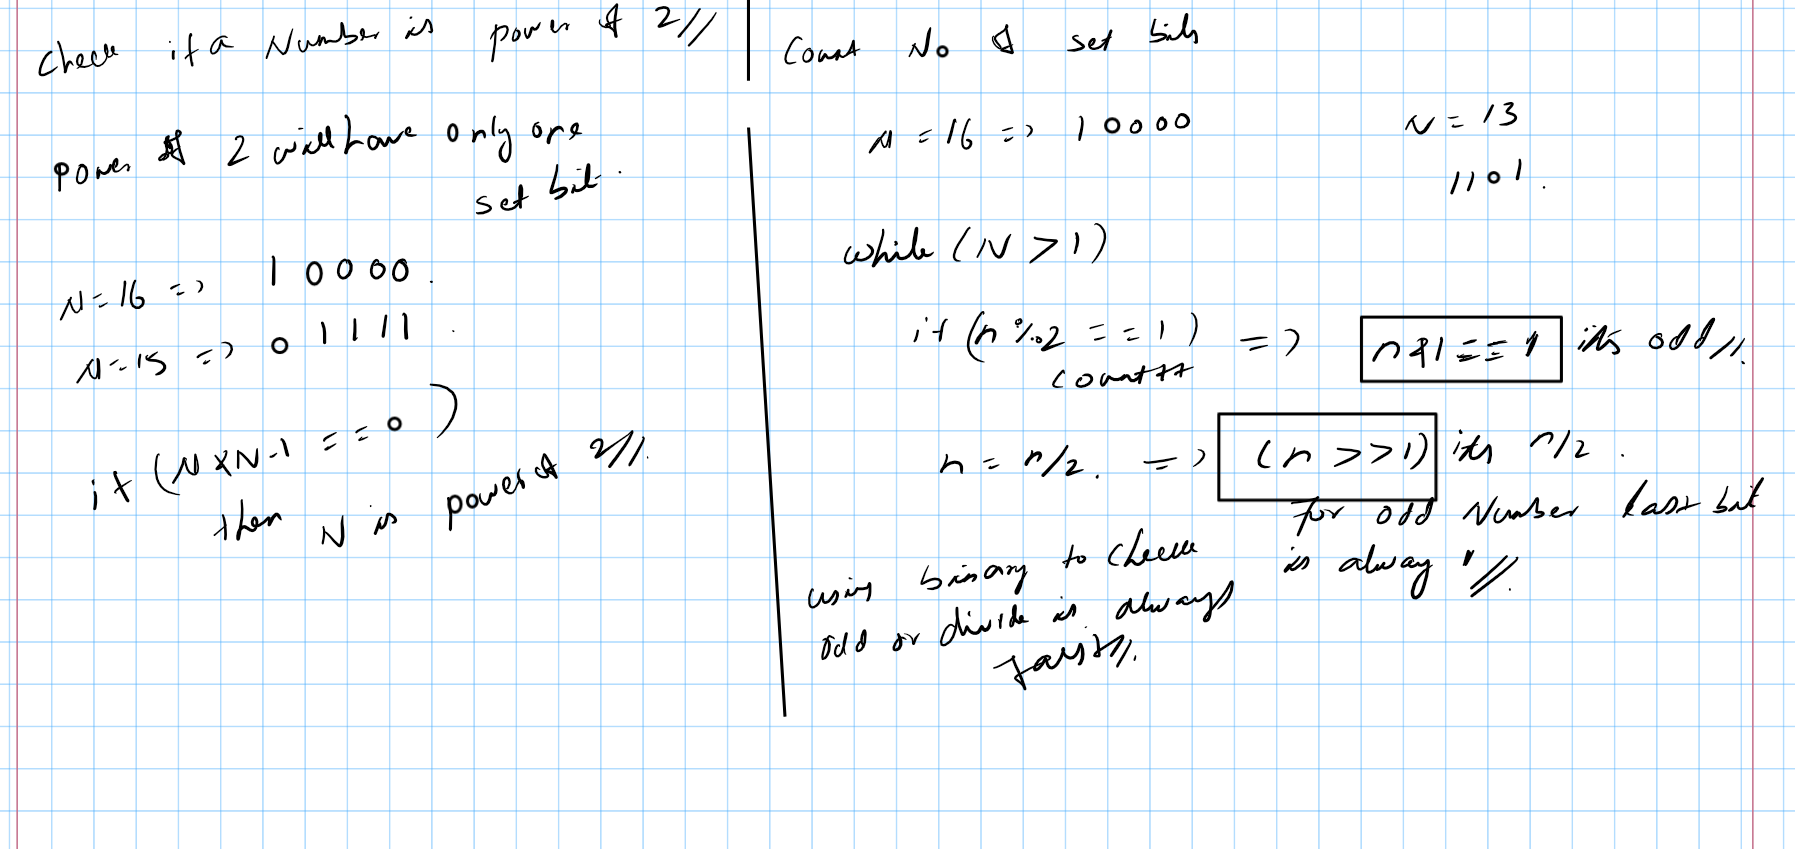 Check if a Number is power of 2//
Power of 2 will have only one
set bit.
N=16 => 10000.
N=15 => 01111.
if (N & N-1 == 0)
then N is power of 2//.
Count No of set bits
N = 16 => 10000
N = 13
1101.
while (N > 1)
if (n % 2 == 1) => n&1 == 1 its odd//.
count++
n = n/2. => (n >> 1) its n/2.
for odd Number last bit
is alway 1//.
using binary to check
odd or divide is always
fast//.